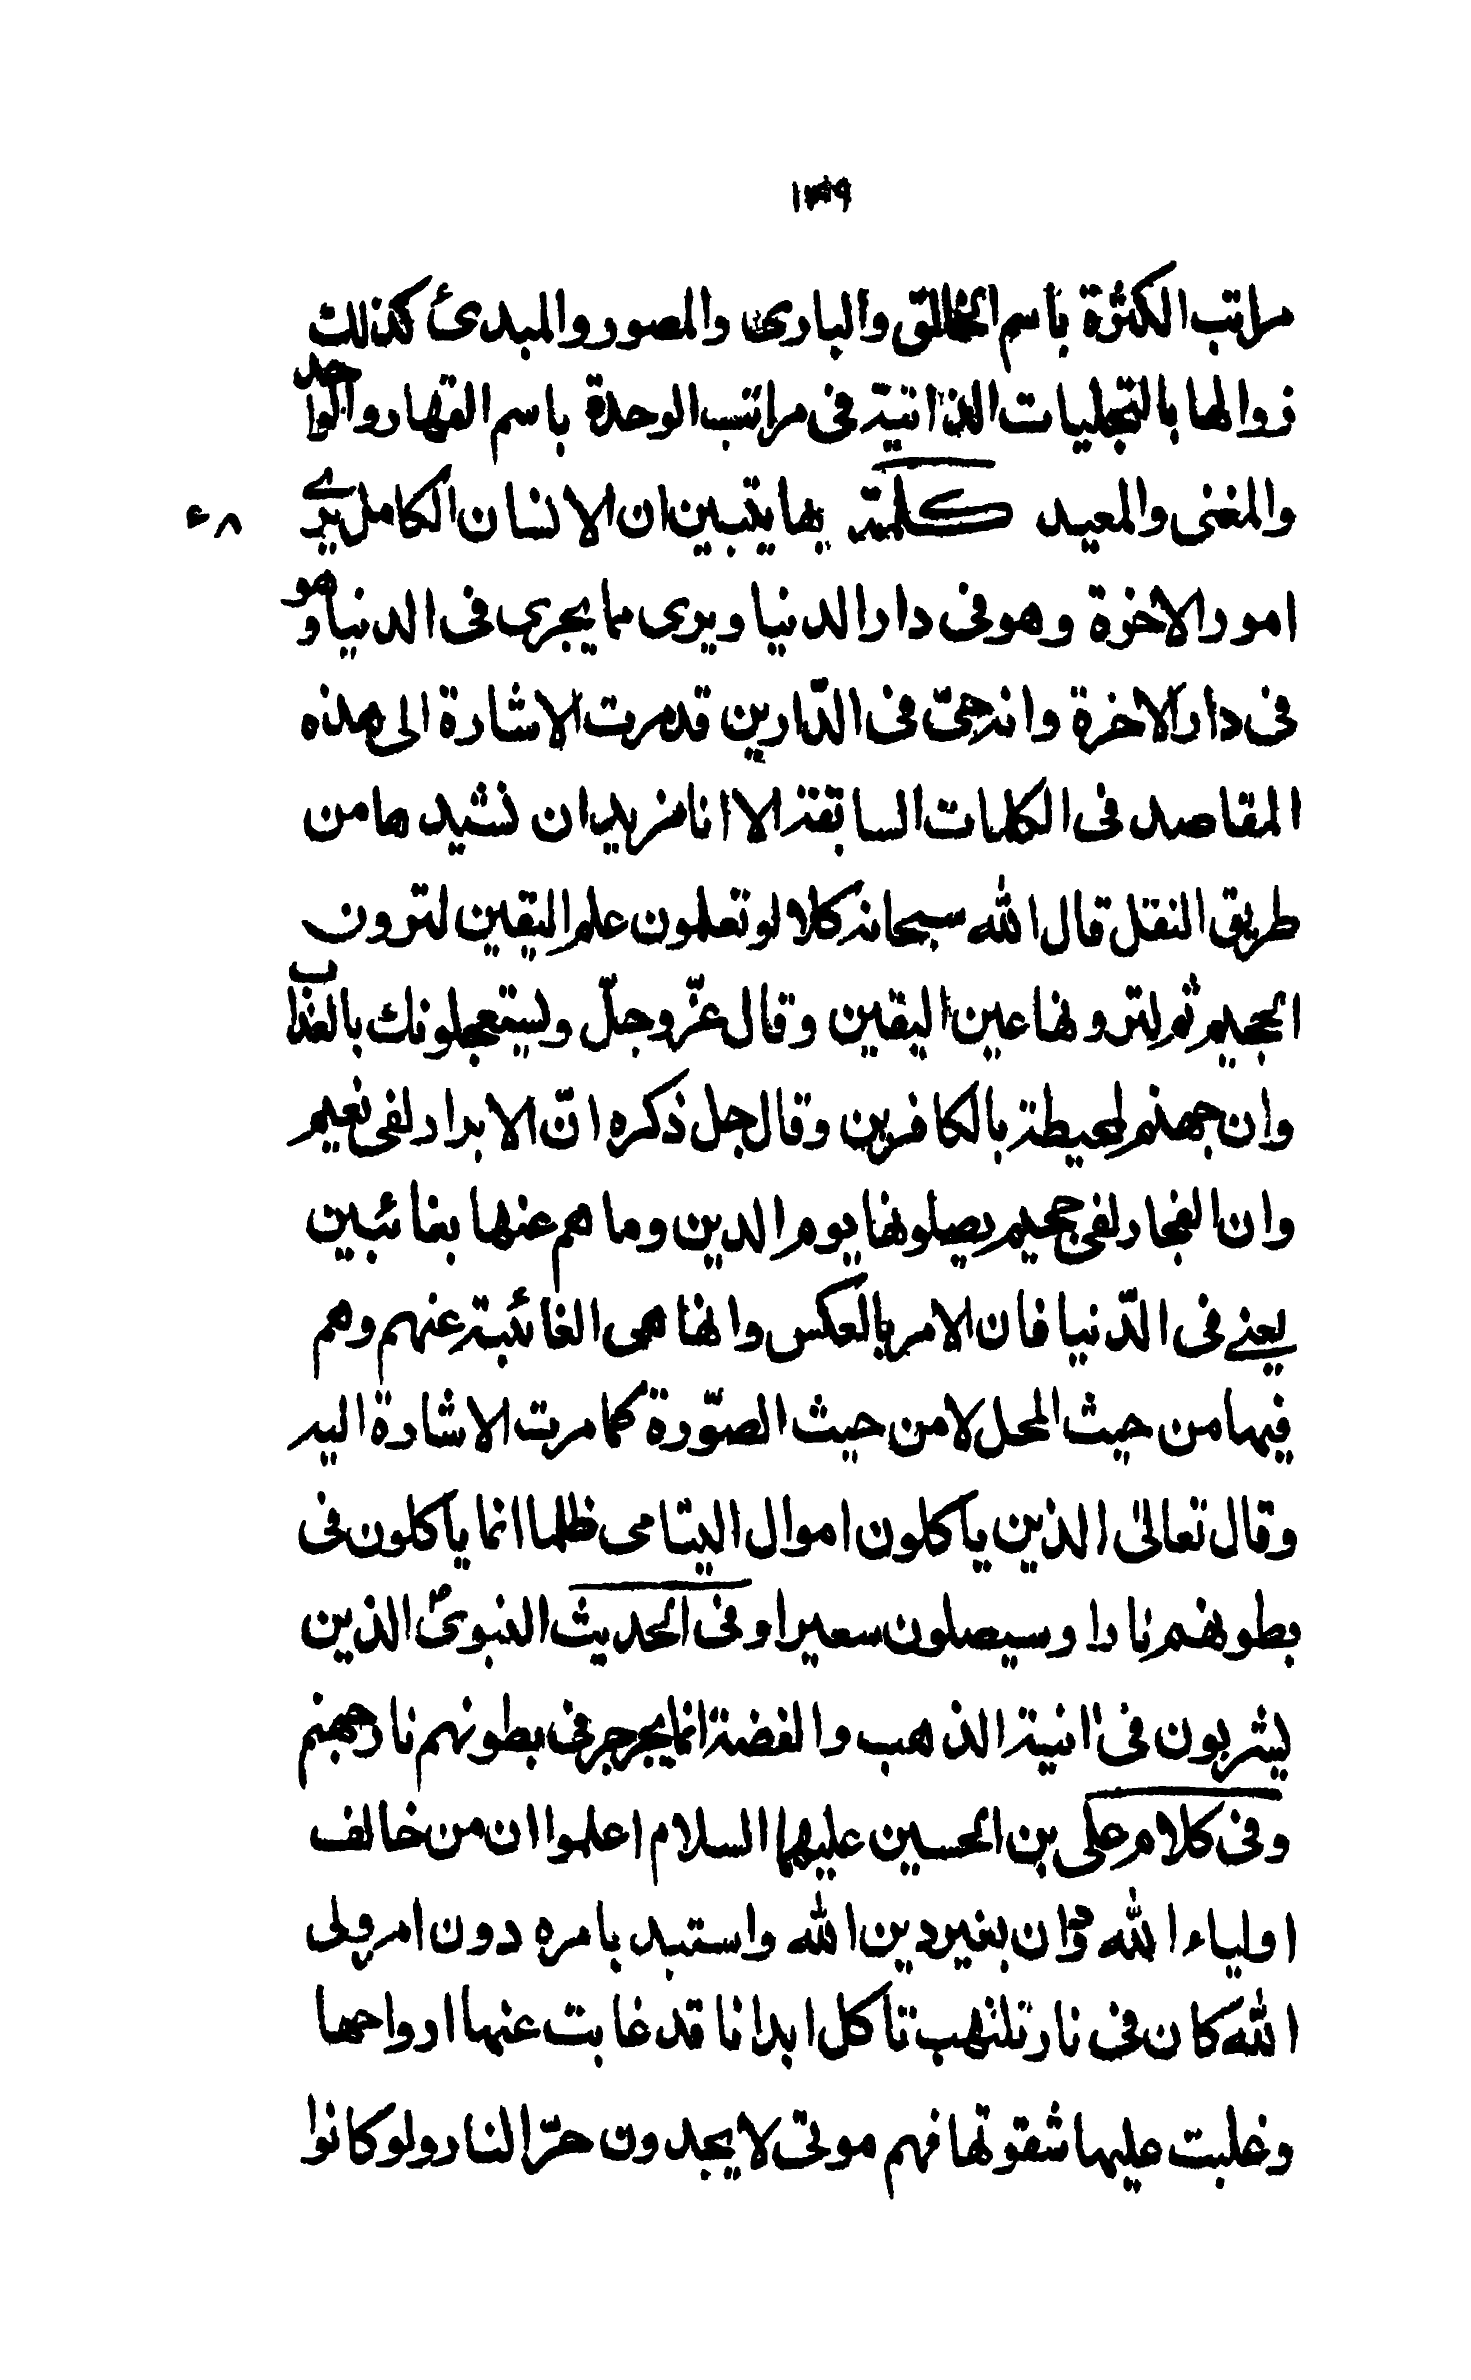 مراتب الكثرة باسم الخالق والبارئ والمصور والمبدئ كذلك
زوالها بالتجليات الذاتية فى مراتب الوحدة باسم القهار والواحد
والمغنى والمعيد كلمة بها يتبين ان الانسان الكامل يرى
امور الاخرة وهو فى دار الدنيا ويرى ما يجرى فى الدنيا وهو
فى دار الاخرة وانه حىّ فى الدّارين قد مرت الاشارة الى هذه
المقاصد فى الكلمات السابقة الا انا نريد ان نشيدها من
طريق النقل قال الله سبحانه كلا لو تعلمون علم اليقين لترون
الجحيم ثم لترونها عين اليقين وقال عزّ وجلّ ويستعجلونك بالعذاب
وان جهنم لمحيطة بالكافرين وقال جل ذكره انّ الابرار لفى نعيم
وان الفجار لفى جحيم يصلونها يوم الدين وما هم عنها بغائبين
يعنے فى الدّنيا فان الامر بالعكس وانها هى الغائبة عنهم وهم
فيها من حيث المحل لا من حيث الصّورة كما مرت الاشارة اليه
وقال تعالى الذين ياكلون اموال اليتامى ظلما انما ياكلون فى
بطونهم نارا وسيصلون سعيرا وفى الحديث النبوىّ الذين
يشربون فى انية الذهب والفضة انما يجرجر فى بطونهم نار جهنم
وفى كلام على بن الحسين عليهما السلام اعلموا ان من خالف
اولياء الله ودان بغير دين الله واستبد بامره دون امر ولى
الله كان فى نار تلتهب تاكل ابدانا قد غابت عنها ارواحها
وغلبت عليها شقوتها فهم موتى لا يجدون حرّ النار ولو كانوا